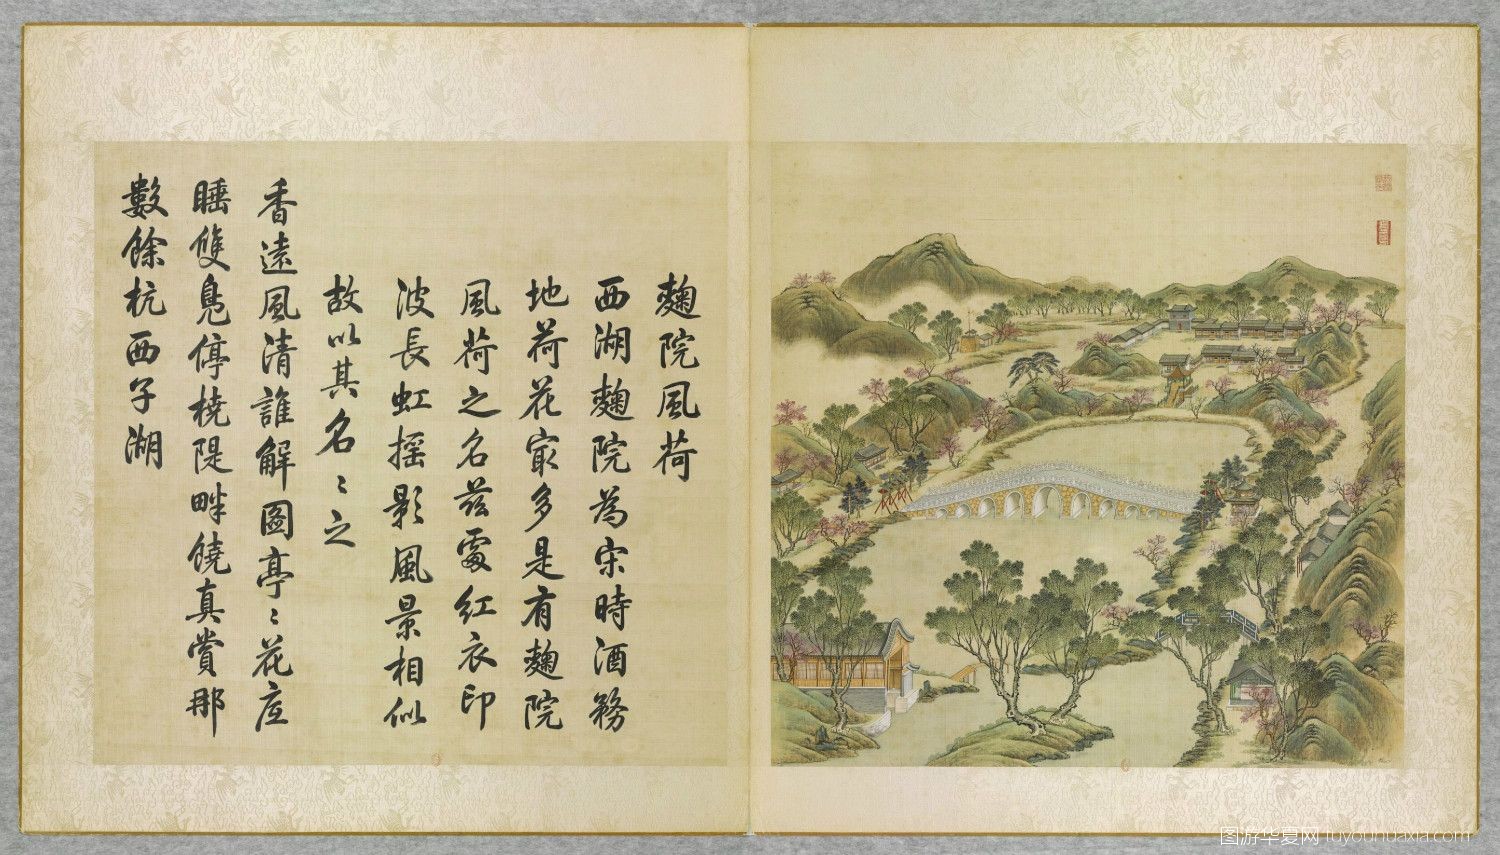 麴院風荷
西湖麴院為宋時酒務
地荷花寂多是有麴院
風荷之名茲處紅衣印
波長虹搖影風景相似
故以其名〻之
香遠風清誰解圖亭〻花底
睡雙鳧停橈隄畔饒真賞那
數餘杭西子湖
图游华夏网 tuyouhuaxia.com